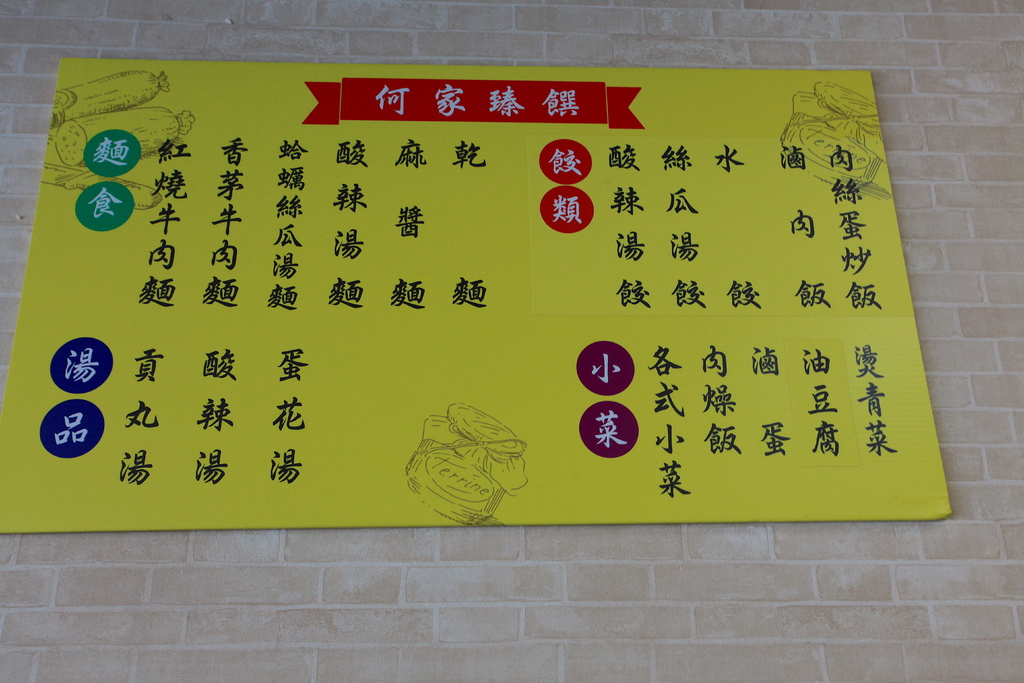 何家臻饌
麵食
紅燒牛肉麵
香茅牛肉麵
蛤蠣絲瓜湯麵
酸辣湯麵
麻醬麵
乾麵
餃類
酸辣湯餃
絲瓜湯餃
水餃
滷肉飯
肉絲蛋炒飯
湯品
貢丸湯
酸辣湯
蛋花湯
小菜
各式小菜
肉燥飯
滷蛋
油豆腐
燙青菜
Terrine